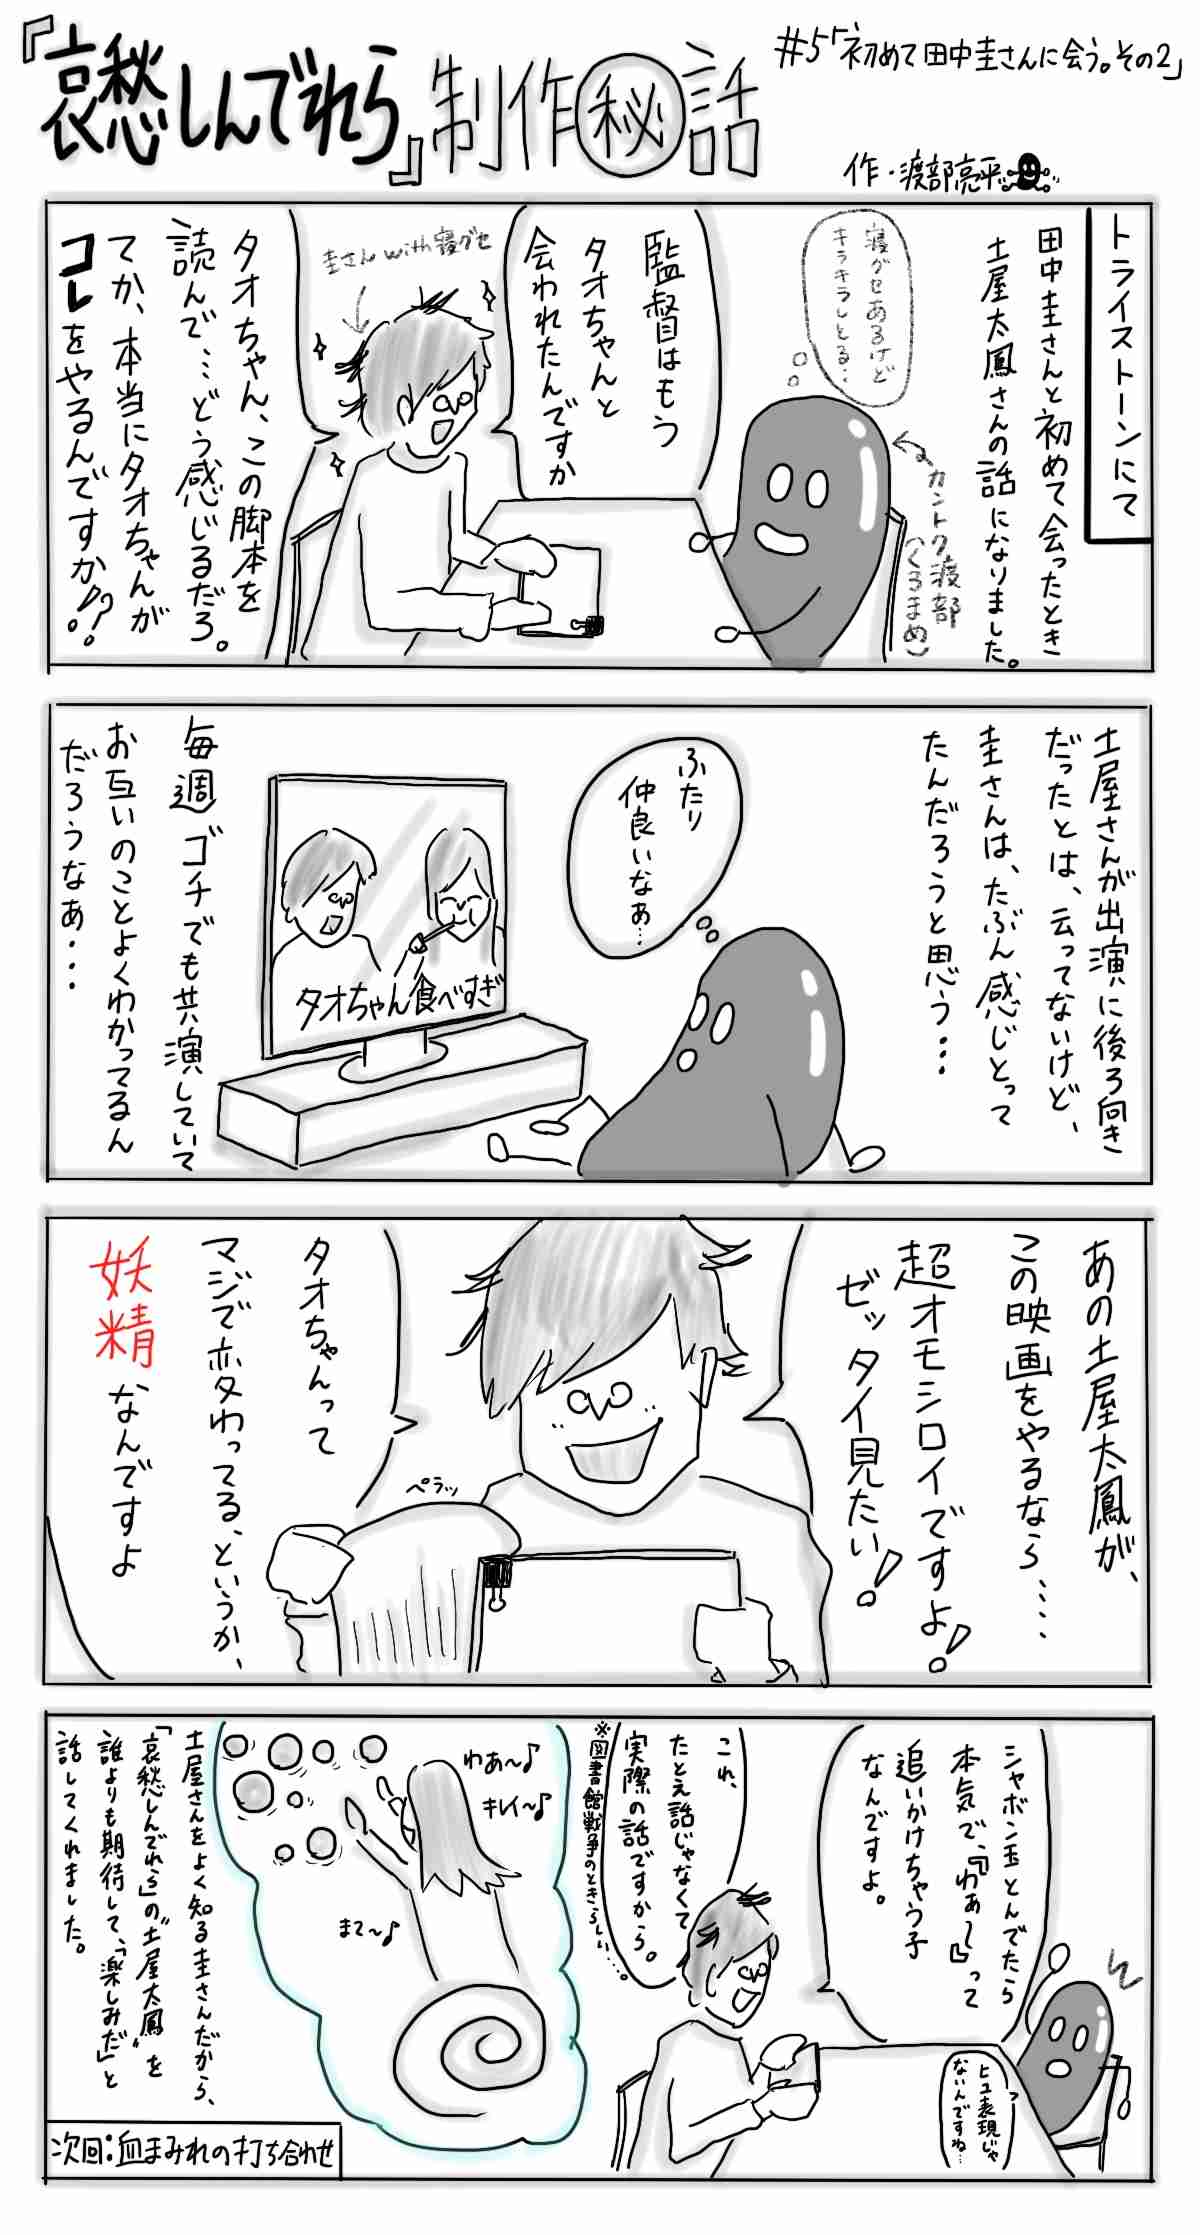 『哀愁しんでれら』制作㊙話
#5「初めて田中圭さんに会う。その2」
作・渡部亮平
トライストーンにて
田中圭さんと初めて会ったとき
土屋太鳳さんの話になりました。
寝グセあるけど
キラキラしとる‥
カントク渡部
(くろまめ)
監督はもう
タオちゃんと
会われたんですか
圭さんwith寝グセ
タオちゃん、この脚本を
読んで…どう感じるだろ。
てか、本当にタオちゃんが
コレをやるんですか!?
土屋さんが出演に後ろ向き
だったとは、云ってないけど、
圭さんは、たぶん感じとって
たんだろうと思う…
ふたり
仲良いなぁ…
タオちゃん食べすぎ
毎週ゴチでも共演していて
お互いのことよくわかってるん
だろうなぁ・・・
あの土屋太鳳が、
この映画をやるなら‥‥
超オモシロイですよ!
ゼッタイ見たい!
ペラッ
タオちゃんって
マジで変わってる、というか、
妖精なんですよ
シャボン玉とんでたら
本気で、『わぁ〜』って
追いかけちゃう子
なんですよ。
ヒユ表現じゃ
ないんですね…
これ、
たとえ話じゃなくて
実際の話ですから。
※図書館戦争のときらしい…。
わあ〜♪
キレイ〜♪
まて〜♪
土屋さんをよく知る圭さんだから、
「哀愁しんでれら」の“土屋太鳳”を
誰よりも期待して、「楽しみだ」と
話してくれました。
次回:血まみれの打ち合わせ